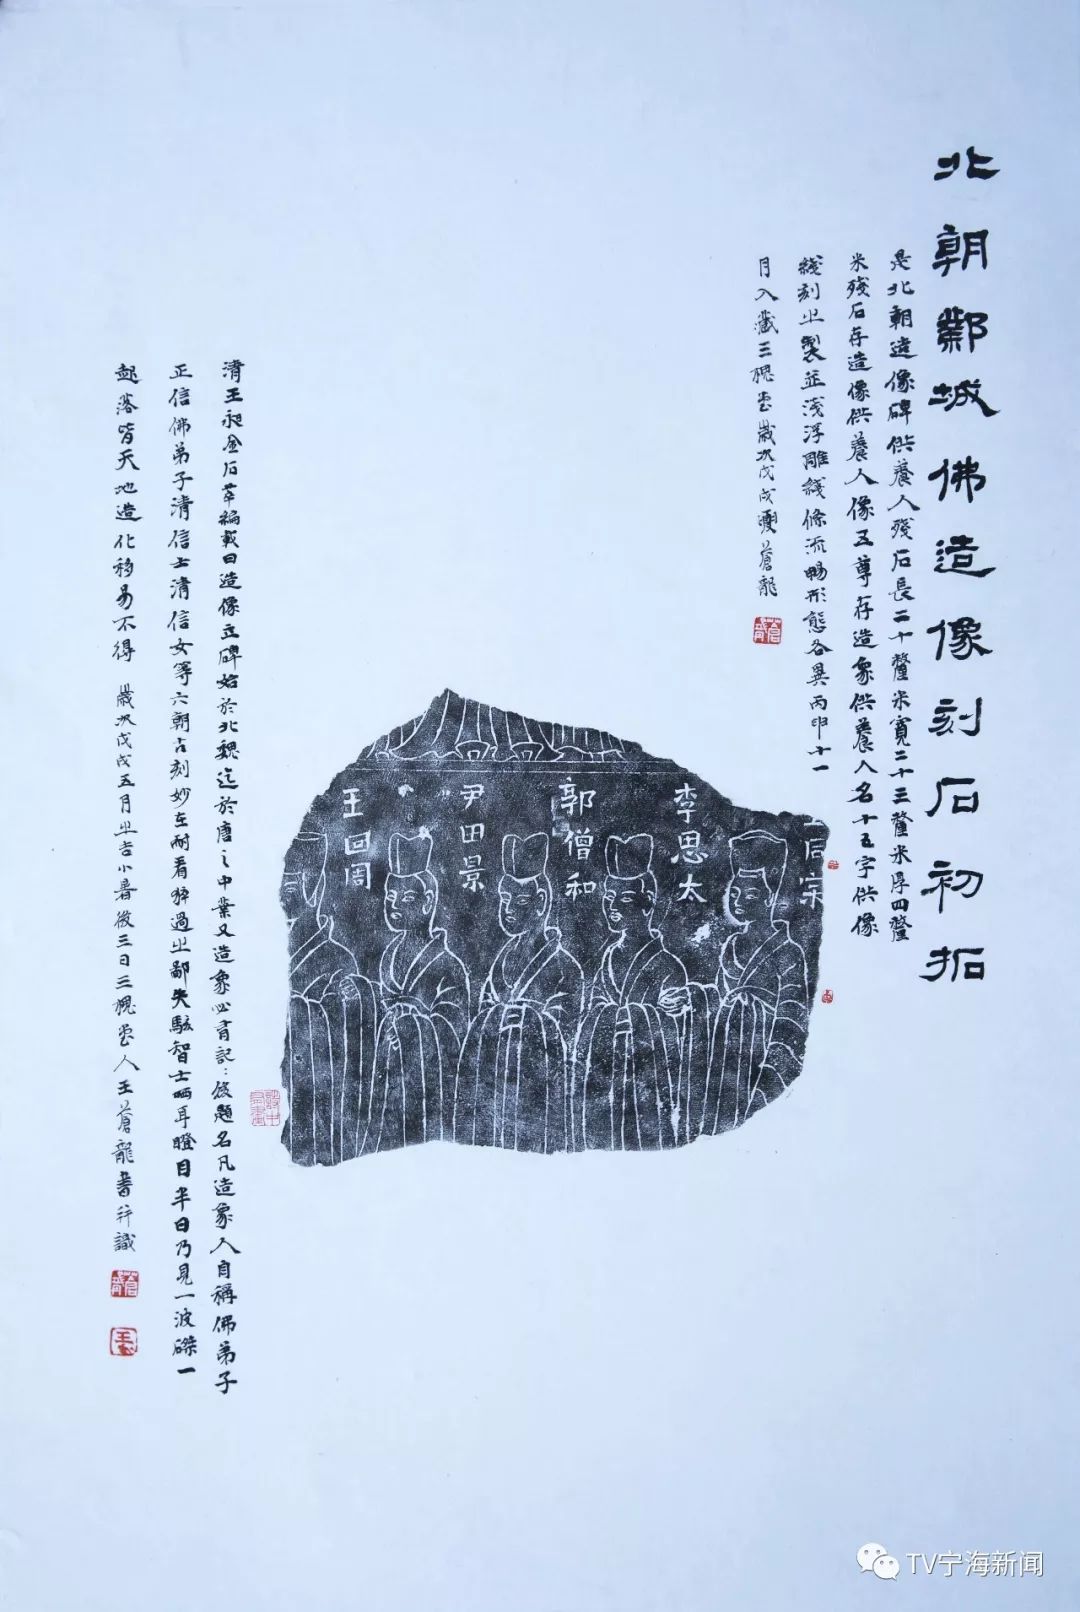 北朝鄴城佛造像刻石初拓
是北朝造像碑供養人殘石長二十釐米寬二十三釐米厚四釐
米殘石存造像供養人像五尊存造象供養人名十五字供像
綫刻之製並淺浮雕綫條流暢形態各異丙申十一
月入藏三槐堂歲次戊戌夏蒼龍
李思太
郭僧和
尹田景
王回周
清王昶金石萃編載曰造像立碑始於北魏迄於唐之中葉又造象必有記後題名凡造象人自稱佛弟子
正信佛弟子清信士清信女等六朝古刻妙在耐看猝過之鄙夫駭智士哂耳瞪目半日乃見一波磔一
起落皆天地造化移易不得 歲次戊戌五月之吉小暑後三日三槐堂人王蒼龍書并識
TV宁海新闻